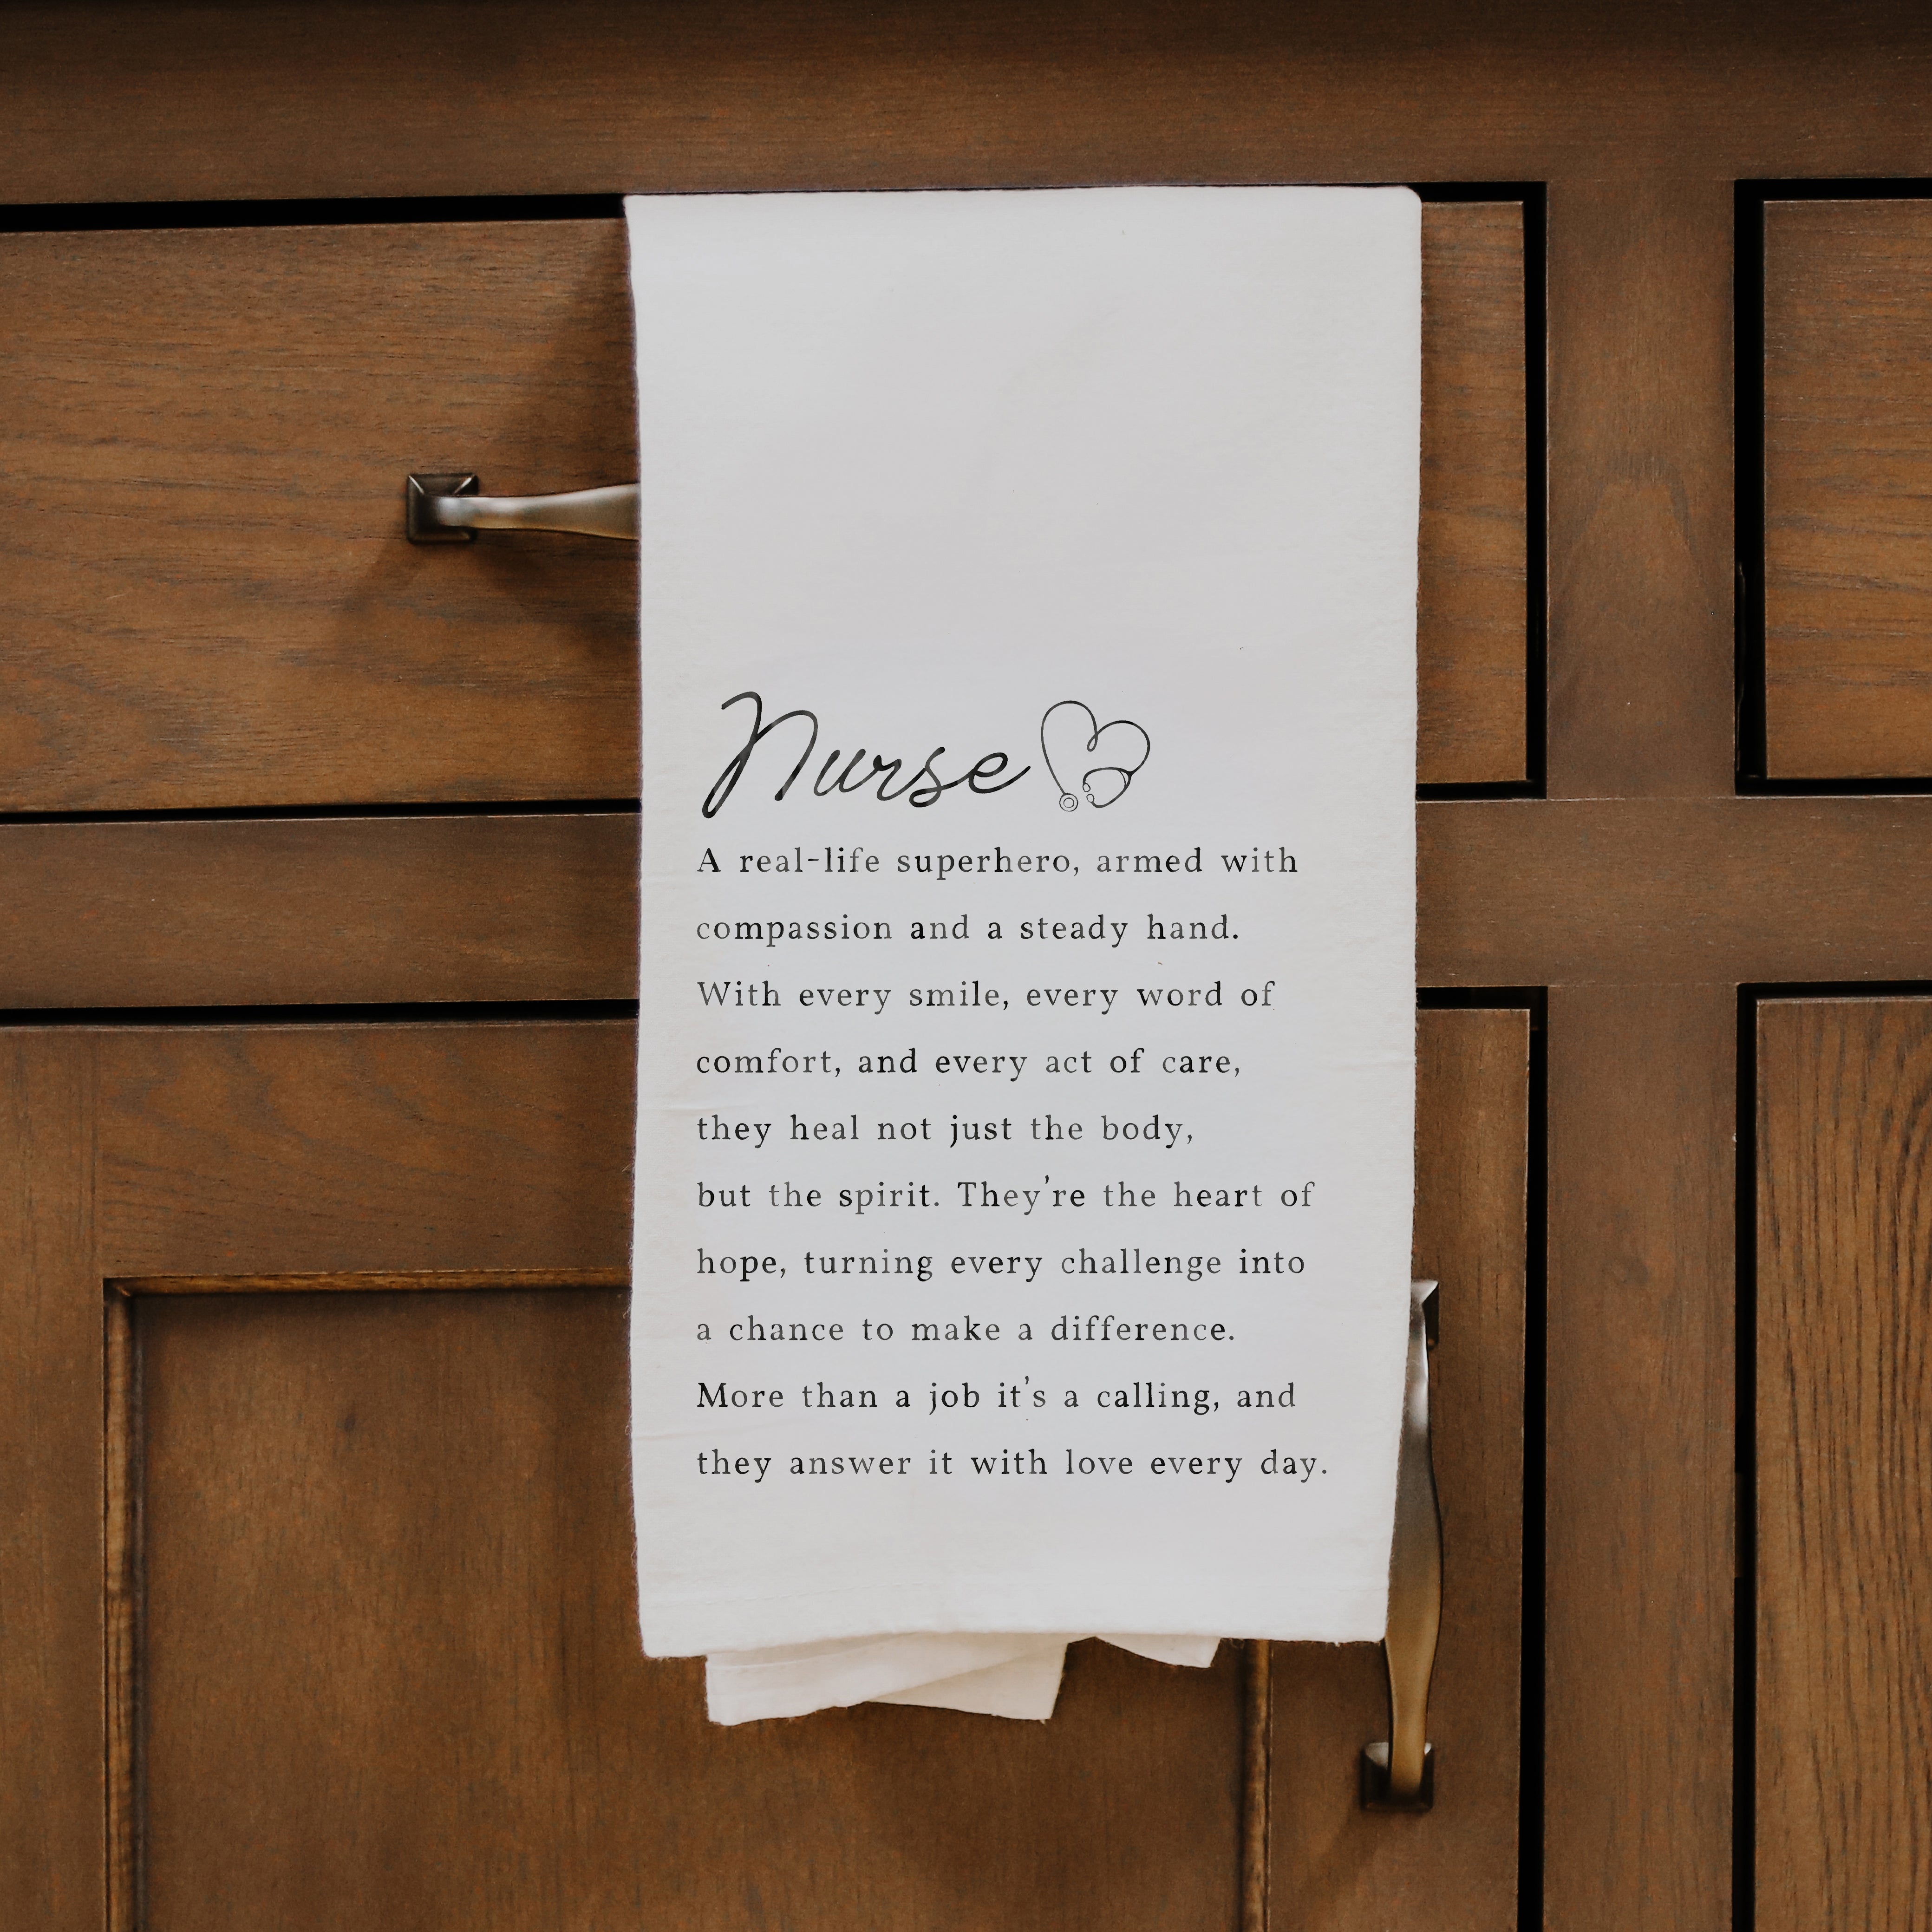 Nurse
A real-life superhero, armed with
compassion and a steady hand.
With every smile, every word of
comfort, and every act of care,
they heal not just the body,
but the spirit. They're the heart of
hope, turning every challenge into
a chance to make a difference.
More than a job it's a calling, and
they answer it with love every day.